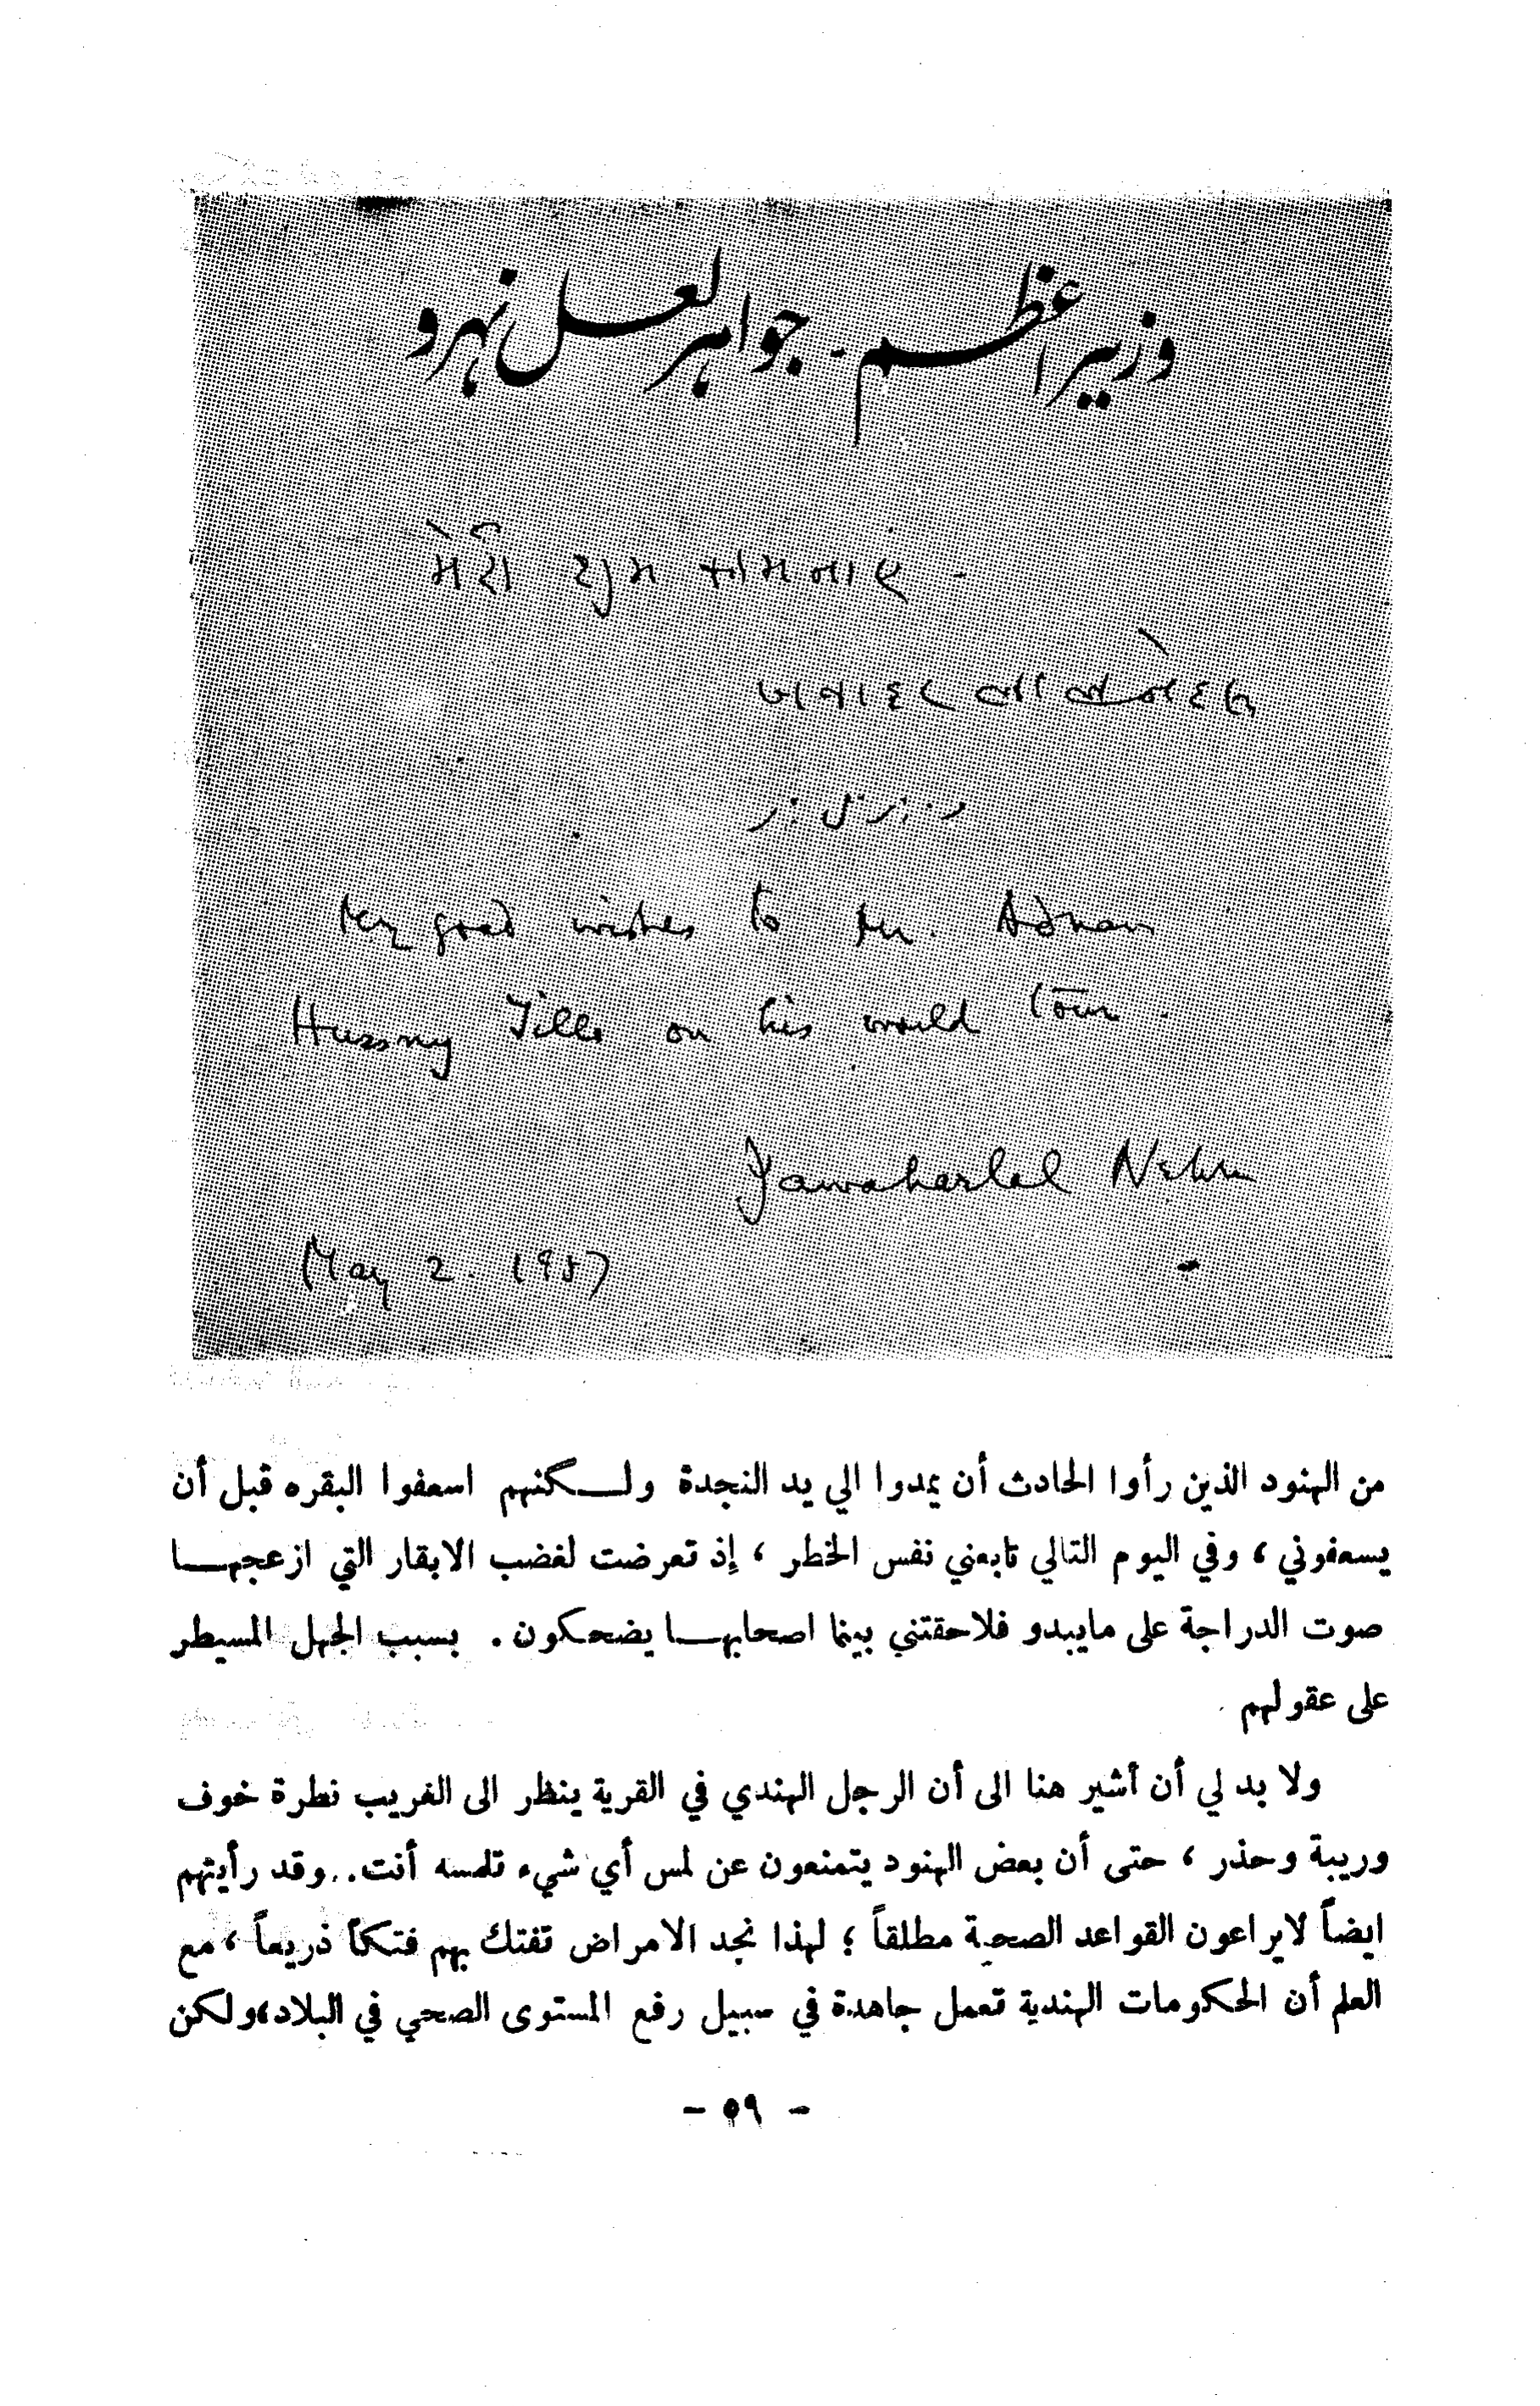 وزیر اعظم - جواہر لعل نہرو
मेरी शुभ कामनाएं -
My good wishes to Mr. Adnan
Hussny Tillo on his world tour.
Jawaharlal Nehru
May 2. 1957
من الهنود الذين رأوا الحادث أن يمدوا الي يد النجدة ولـكنهم اسعفوا البقره قبل أن
يسعفوني ، وفي اليوم التالي تابعني نفس الخطر ، إذ تعرضت لغضب الابقار التي ازعجهـا
صوت الدراجة على مايبدو فلاحقتني بينما اصحابهـا يضحكون . بسبب الجهل المسيطر
على عقولهم .
ولا بد لي أن أشير هنا الى أن الرجل الهندي في القرية ينظر الى الغريب نطرة خوف
وريبة وحذر ، حتى أن بعض الهنود يتمنعون عن لمس أي شيء تلمسه أنت .. وقد رأيتهم
ايضاً لايراعون القواعد الصحية مطلقاً ؛ لهذا نجد الامراض تفتك بهم فتكاً ذريعاً ، مع
العلم أن الحكومات الهندية تعمل جاهدة في سبيل رفع المستوى الصحي في البلاد،ولكن
- ٥٩ -